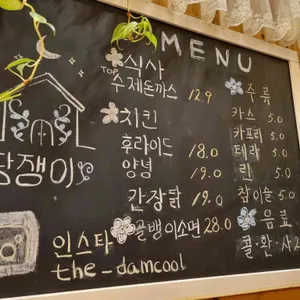 MENU
식사
TOP
수제돈까스 12.9
치킨
후라이드 18.0
양념 19.0
간장닭 19.0
골뱅이소면 28.0
주류
카스 5.0
카프리 5.0
테라 5.0
린 5.0
참이슬 5.0
음료
콜·환·사 2
담쟁이
인스타
the_damcool